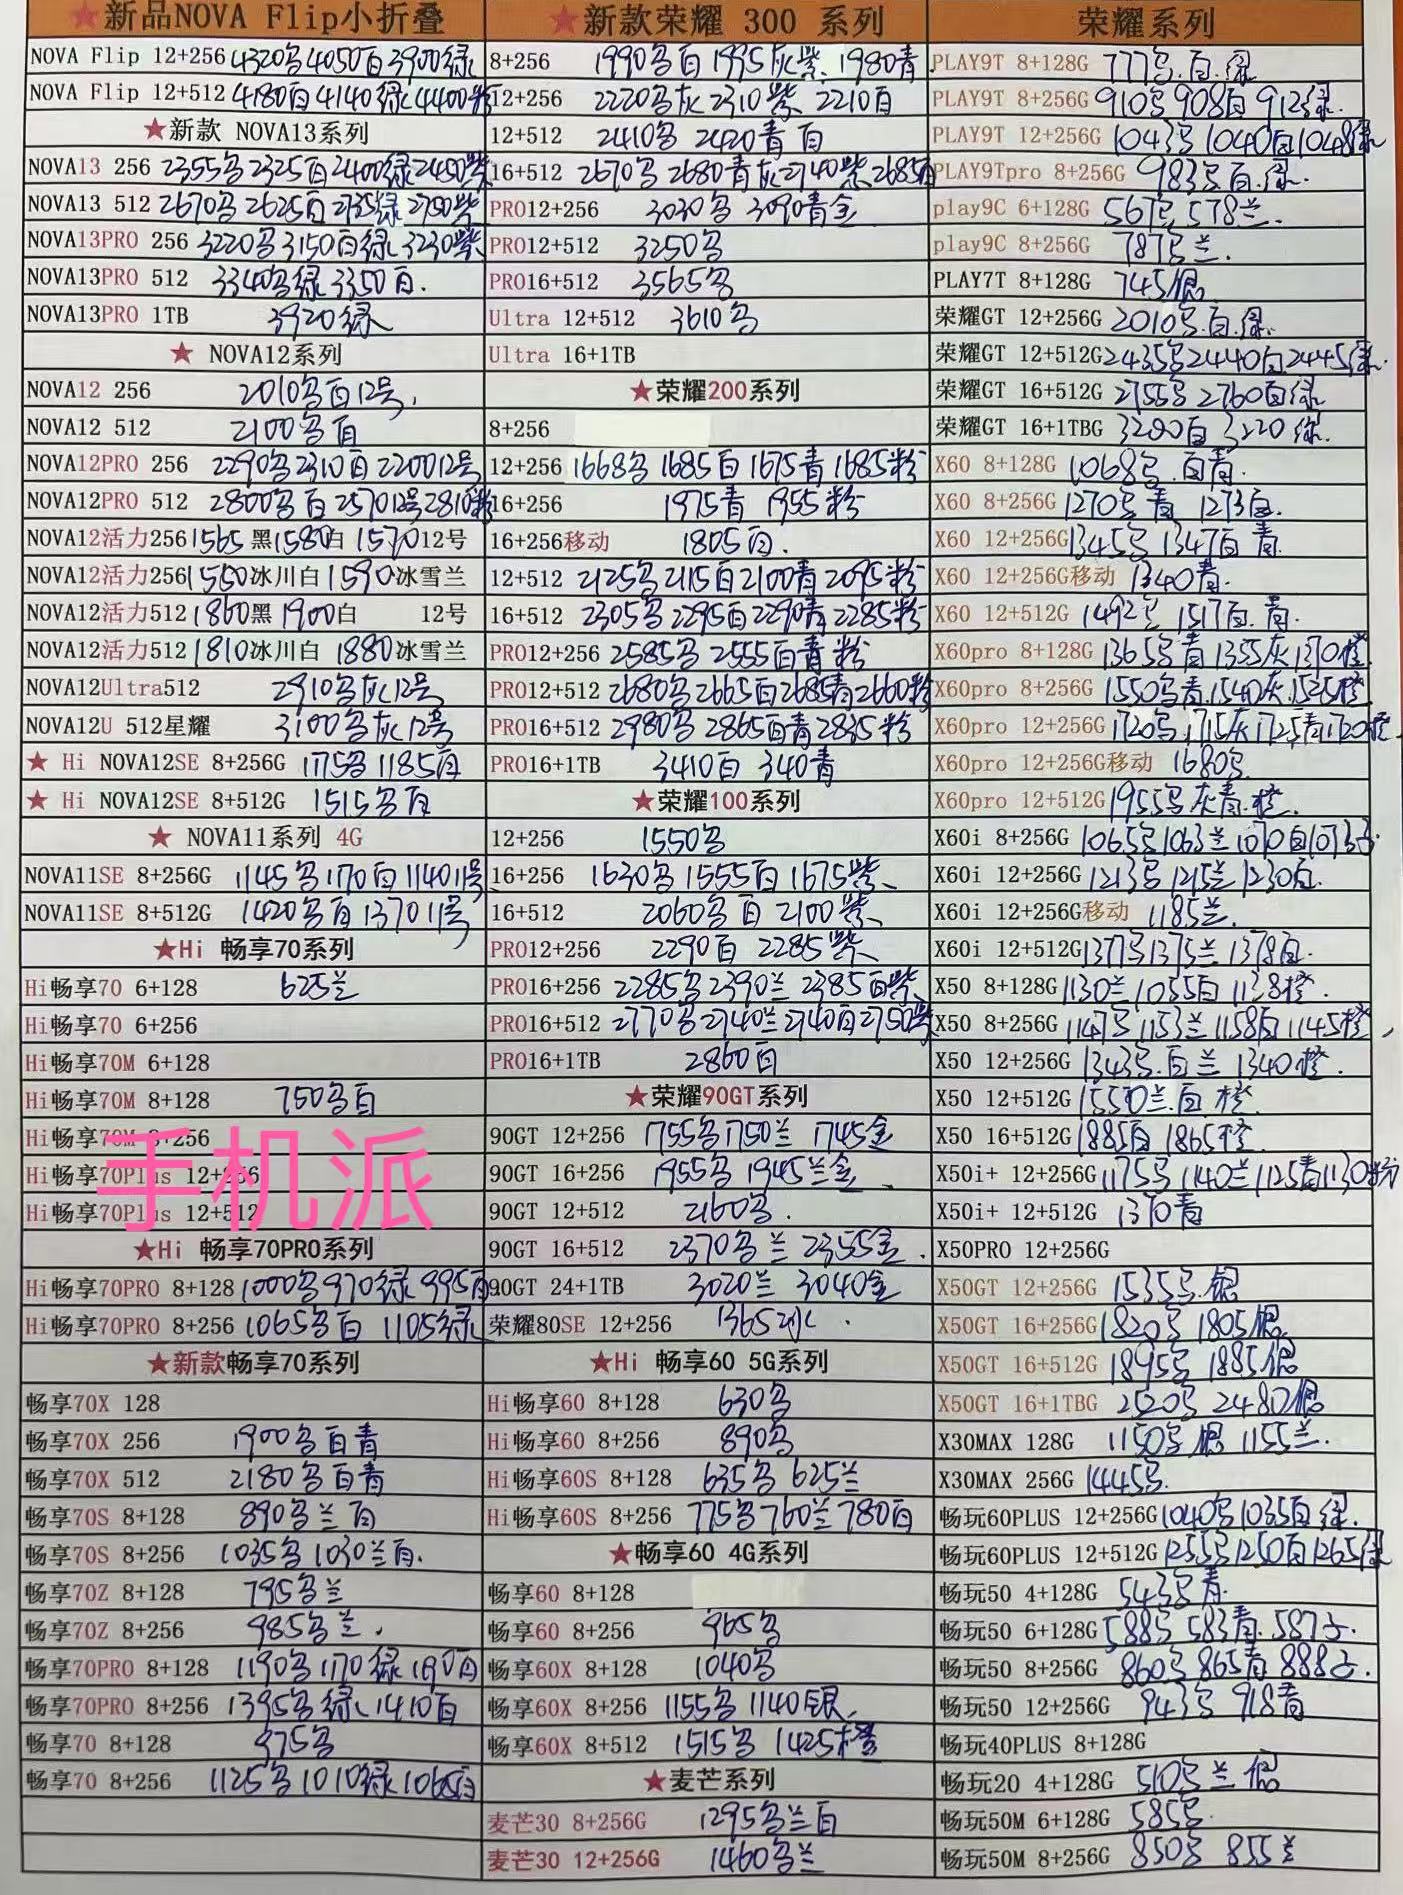 ★新品NOVA Flip小折叠
NOVA Flip 12+256 4320多4050百3900绿
NOVA Flip 12+512 4180百4140绿4400粉
★新款 NOVA13系列
NOVA13 256 2355多2325百2400绿2450紫
NOVA13 512 2670多2625百2735绿2750紫
NOVA13PRO 256 3220多3150百绿3230紫
NOVA13PRO 512 3340多绿3350百.
NOVA13PRO 1TB 3920绿
★ NOVA12系列
NOVA12 256 2010多百12号.
NOVA12 512 2100多百
NOVA12PRO 256 2290多2310百220012号
NOVA12PRO 512 2800多百257012号2810粉
NOVA12活力256 1565 黑1580白 1570 12号
NOVA12活力256 1550冰川白1590冰雪兰
NOVA12活力512 1860黑 1900白 12号
NOVA12活力512 1810冰川白 1880冰雪兰
NOVA12Ultra512 2910多灰12号
NOVA12U 512星耀 3100多灰12号
★ Hi NOVA12SE 8+256G 1175多1185百
★ Hi NOVA12SE 8+512G 1515多百
★ NOVA11系列 4G
NOVA11SE 8+256G 1145多1170百114011号
NOVA11SE 8+512G 1420多百137011号
★Hi 畅享70系列
Hi畅享70 6+128 625兰
Hi畅享70 6+256
Hi畅享70M 6+128
Hi畅享70M 8+128 750多百
Hi畅享70M 8+256
手机派
Hi畅享70Plus 12+256
Hi畅享70Plus 12+512
★Hi 畅享70PRO系列
Hi畅享70PRO 8+128 1000多970绿995百
Hi畅享70PRO 8+256 1065多百 1105绿
★新款畅享70系列
畅享70X 128
畅享70X 256 1900多百青
畅享70X 512 2180多百青
畅享70S 8+128 890多兰百
畅享70S 8+256 1035多1030兰百.
畅享70Z 8+128 795多兰
畅享70Z 8+256 985多兰.
畅享70PRO 8+128 1190多1170绿1190百
畅享70PRO 8+256 1395多绿1410百
畅享70 8+128 975多
畅享70 8+256 1125多1010绿1065百
★新款荣耀 300 系列
8+256 1990多百1995灰紫.1980青
12+256 2220多灰2310紫 2210百
12+512 2410多 2420青百
16+512 2670多 2680青灰2740紫2685百
PRO12+256 3030多 3090青金
PRO12+512 3250多
PRO16+512 3565多
Ultra 12+512 3610多
Ultra 16+1TB
★荣耀200系列
8+256
12+256 1668多 1685百 1675青 1685粉
16+256 1975青 1955粉
16+256移动 1805百.
12+512 2125多2115百2100青2095粉
16+512 2305多2295百2290青2285粉
PRO12+256 2585多 2555百青粉
PRO12+512 2680多2665百2685青2660粉
PRO16+512 2980多 2865百青2835粉
PRO16+1TB 3410百 340青
★荣耀100系列
12+256 1550多
16+256 1630多1555百1675紫
16+512 2060多百 2100紫
PRO12+256 2290百 2285紫
PRO16+256 2285多2390兰 2385百紫
PRO16+512 2770多2740兰2740百2750紫
PRO16+1TB 2860百
★荣耀90GT系列
90GT 12+256 1755多1750兰 1745金
90GT 16+256 1955多 1945兰金
90GT 12+512 2160多.
90GT 16+512 2370多兰 2355金.
90GT 24+1TB 3020兰 3040金
荣耀80SE 12+256 1365冰.
★Hi 畅享60 5G系列
Hi畅享60 8+128 630多
Hi畅享60 8+256 890多
Hi畅享60S 8+128 635多 625兰
Hi畅享60S 8+256 775多760兰780百
★畅享60 4G系列
畅享60 8+128
畅享60 8+256 965多
畅享60X 8+128 1040多
畅享60X 8+256 1155多 1140银
畅享60X 8+512 1515多 1425橙
★麦芒系列
麦芒30 8+256G 1295多兰百
麦芒30 12+256G 1460多兰
荣耀系列
PLAY9T 8+128G 777多.百.绿
PLAY9T 8+256G 910多908百912绿.
PLAY9T 12+256G 1043多1040百1048绿
PLAY9Tpro 8+256G 983多百.绿.
play9C 6+128G 567多578兰.
play9C 8+256G 787多兰.
PLAY7T 8+128G 745银
荣耀GT 12+256G 2010多.百.绿.
荣耀GT 12+512G 2435多2440百2445绿.
荣耀GT 16+512G 2755多2760百绿
荣耀GT 16+1TBG 3200百3220绿.
X60 8+128G 1068多.百青.
X60 8+256G 1270多青 1273百.
X60 12+256G 1345多1347百青
X60 12+256G移动 1340青.
X60 12+512G 1492多 1517百.青.
X60pro 8+128G 1365多青1355灰1370橙
X60pro 8+256G 1550多青.1540灰.1525橙
X60pro 12+256G 1720多.1715灰1725青1720橙
X60pro 12+256G移动 1680多
X60pro 12+512G 1955多灰青.橙.
X60i 8+256G 1065多1063兰1070百1073子.
X60i 12+256G 1213多1215兰1230百.
X60i 12+256G移动 1185兰.
X60i 12+512G 1377多1375兰1378百.
X50 8+128G 1130兰1055百1138橙.
X50 8+256G 1147多1153兰1158百1145橙
X50 12+256G 1343多.百兰 1340橙.
X50 12+512G 1550兰.百.橙.
X50 16+512G 1885百1865橙.
X50i+ 12+256G 1175多1140兰1125青1130粉
X50i+ 12+512G 1370青
X50PRO 12+256G
X50GT 12+256G 1535多.银
X50GT 16+256G 1820多 1805银.
X50GT 16+512G 1895多 1885银
X50GT 16+1TBG 2520多 2480银
X30MAX 128G 1150多银 1155兰.
X30MAX 256G 1445多.
畅玩60PLUS 12+256G 1040多1035百绿.
畅玩60PLUS 12+512G 1255多1250百1265绿
畅玩50 4+128G 543多青.
畅玩50 6+128G 588多 583青.587子.
畅玩50 8+256G 860多865青888子.
畅玩50 12+256G 943多 918青
畅玩40PLUS 8+128G
畅玩20 4+128G 510多兰 银
畅玩50M 6+128G 585多.
畅玩50M 8+256G 850多 855兰